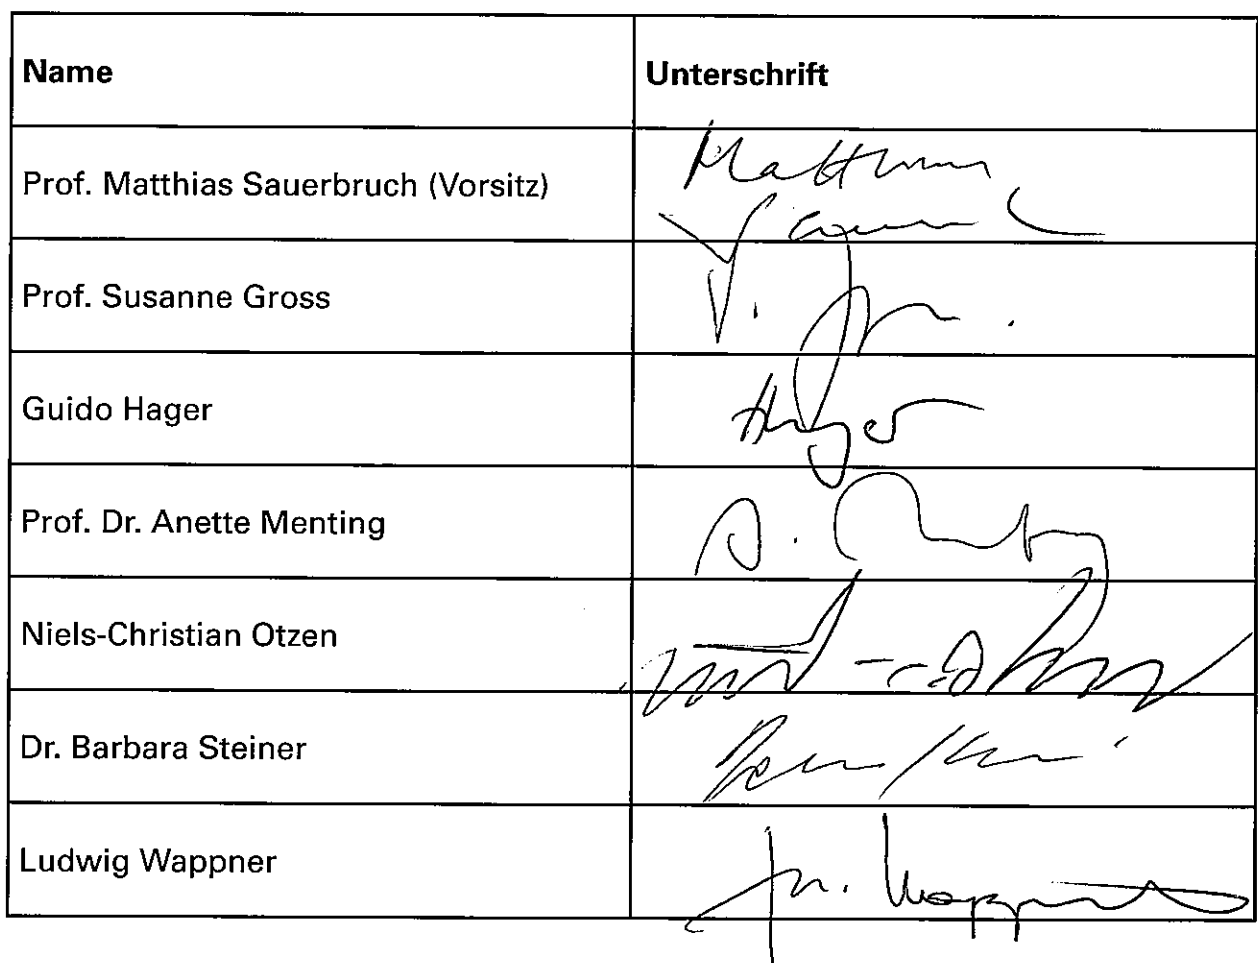 Name Unterschrift
Prof. Matthias Sauerbruch (Vorsitz) Matthias
Prof. Susanne Gross
Guido Hager Hager
Prof. Dr. Anette Menting A.
Niels-Christian Otzen
Dr. Barbara Steiner
Ludwig Wappner Wappner